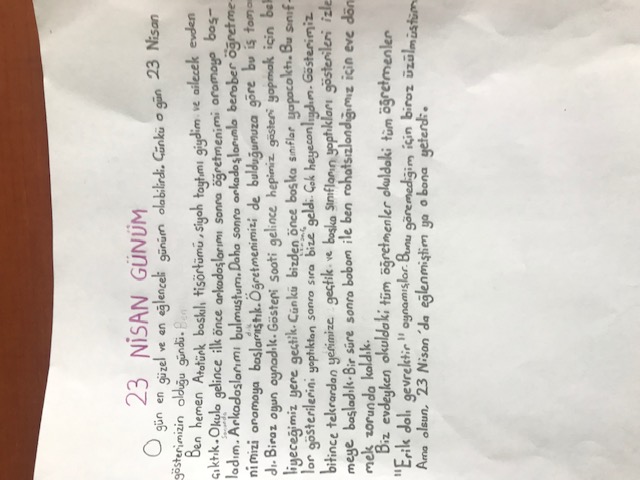 23 NİSAN GÜNÜM
O gün en güzel ve en eğlenceli günüm olabilirdi. Çünkü o gün 23 Nisan
gösterimizin olduğu gündü.
Ben hemen Atatürk baskılı tişörtümü, siyah taytımı giydim ve ailecek evden
çıktık. Okula gelince ilk önce arkadaşlarımı sonra öğretmenimi aramaya baş-
ladım. Arkadaşlarımı bulmuştum. Daha sonra arkadaşlarımla beraber öğretme-
nimizi aramaya başlamıştık. Öğretmenimizi de bulduğumuza göre bu iş tamam
dı. Biraz oyun oynadık. Gösteri saati gelince hepimiz gösteri yapmak için bek
liyeceğimiz yere geçtik. Çünkü bizden önce başka sınıflar yapacaktı. Bu sınıf-
lar gösterilerini yaptıktan sonra sıra bize geldi. Çok heyecanlıydım. Gösterimiz
bitince tekrardan yerimize geçtik ve başka sınıfların yaptıkları gösterileri izle
meye başladık. Bir süre sonra babam ile ben rahatsızlandığımız için eve dön
mek zorunda kaldık.
Biz evdeyken okuldaki tüm öğretmenler okuldaki tüm öğretmenler
"Erik dalı gevrektir" oynamışlar. Bunu göremediğim için biraz üzülmüştüm
Ama olsun, 23 Nisan'da eğlenmiştim ya o bana yeterdi.